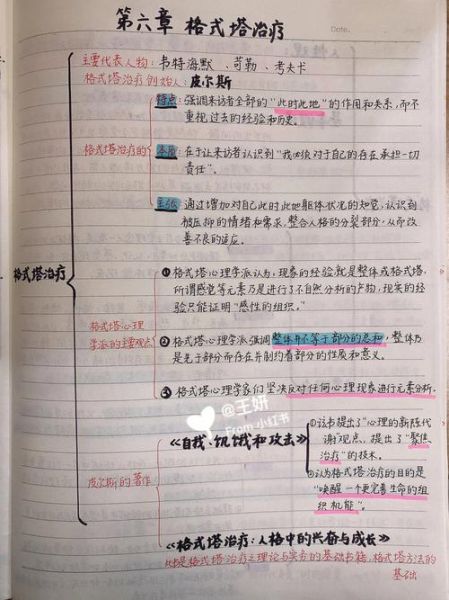 第六章 格式塔治疗
Date.
主要代表人物：韦特海默、苛勒、考夫卡
格式塔治疗创始人：皮尔斯
格式塔治疗
格式塔治疗的
特点：强调来访者全部的“此时此地”的作用和关系，而不
重视过去的经验和历史。
本质：在于让来访者认识到“我必须对于自己的存在承担一切
责任”。
主张：通过增加对自己此时此地躯体状况的知觉，认识到
被压抑的情绪和需求，整合人格的分裂部分，从而改
善不良的适应。
格式塔心理
学派的主要观点
①格式塔心理学派认为，现象的经验就是整体或格式塔，
所谓感觉等元素乃是进行了不自然分析的产物，现实的经
验只能证明“感性的组织。”
②格式塔心理学派强调整体并不等于部分的总和，整体乃
是先于部分而存在并制约着部分的性质和意义。
③格式塔心理学家们坚决反对任何心理现象进行元素分析。
@王妍
From 小红书
皮尔斯的著作
《自我、饥饿和攻击》
①该书提出了“心理的新陈代
谢”观点，提出了“聚焦
治疗”的技术。
②认为格式塔治疗的目的是
“唤醒一个更完善生命的组
织机能”。
《格式塔治疗：人格中的兴奋与成长》
是格式塔治疗之理论与实务的基础书籍，格式塔方法的
基础